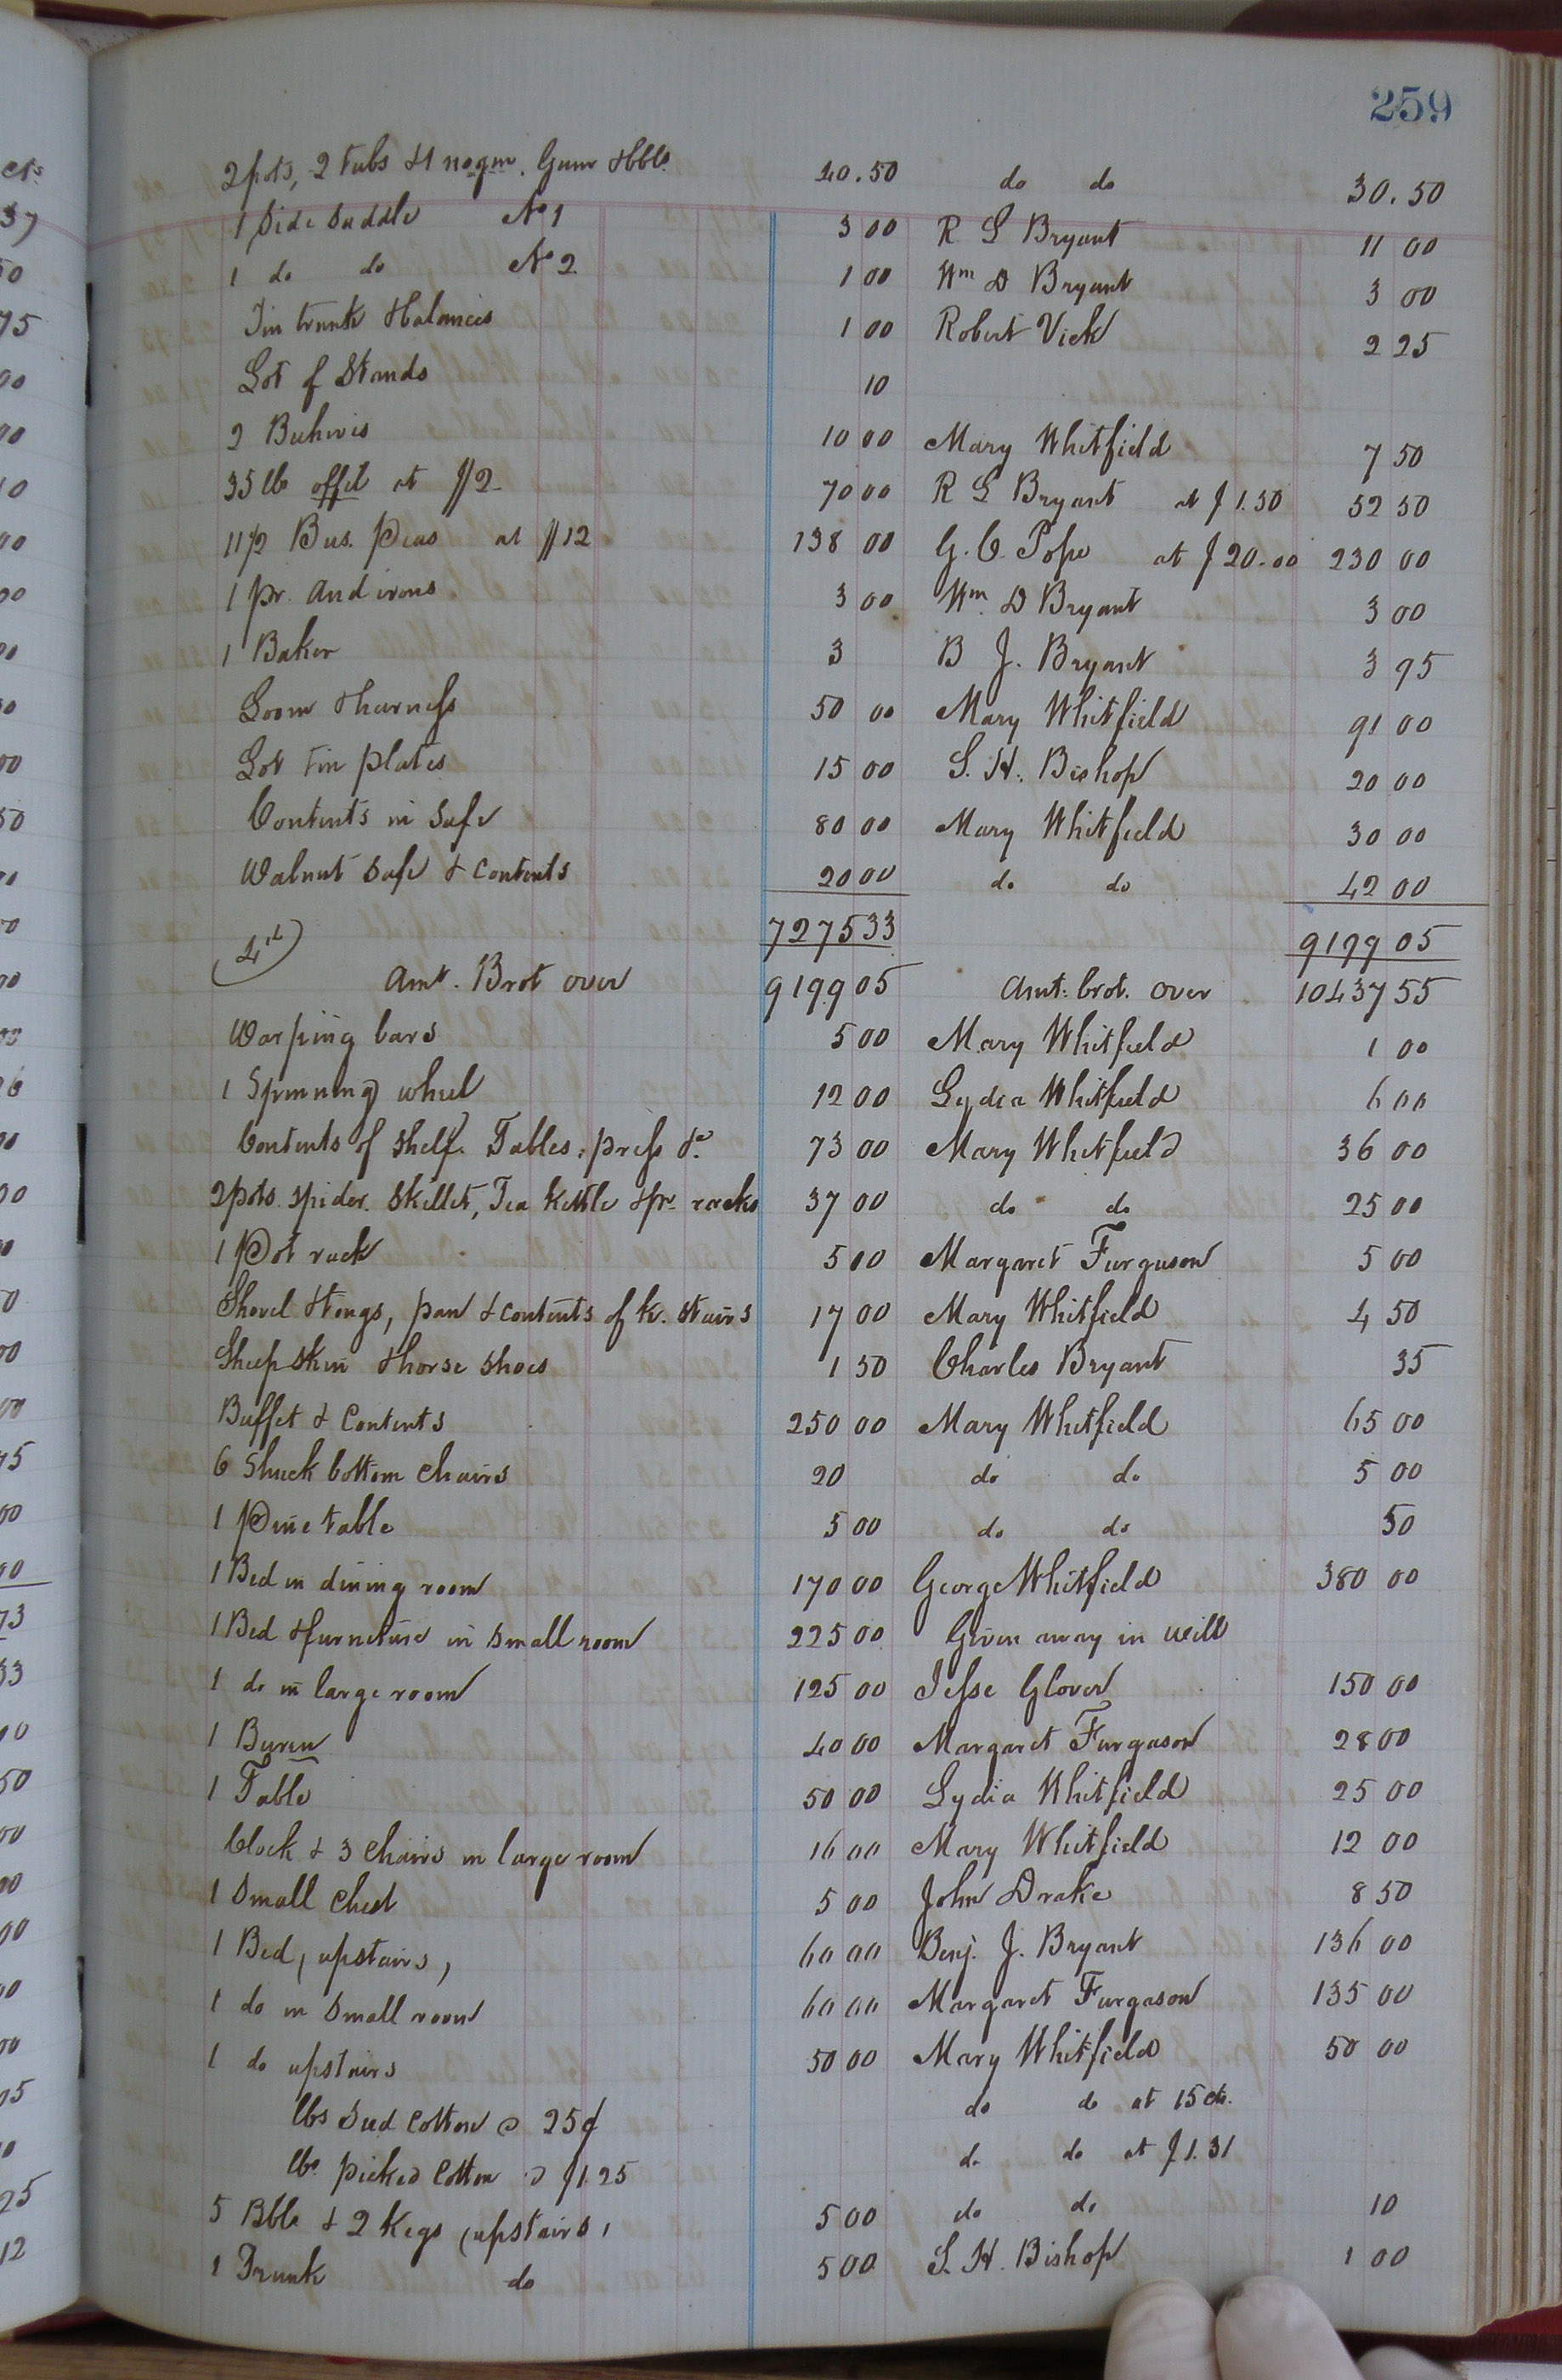 259
2 pots, 2 tubs & 1 Gum & bbls. 40.50 do do 30.50
1 Side Saddle No 1 3 00 R S Bryant 11 00
1 do do No 2 1 00 Wm D Bryant 3 00
Tin trunk & balances 1 00 Robert Vick 2 25
Lot of Stands 10
2 Buhivis 10 00 Mary Whitfield 7 50
35 lb offil at $2 70 00 R S Bryant at $1.50 52 50
11 1/2 Bus. Peas at $12 138 00 G. C. Pope at $20.00 230 00
1 pr. And irons 3 00 Wm. D Bryant 3 00
1 Baker 3 B J. Bryant 3 95
Loom & harness 50 00 Mary Whitfield 91 00
Lot tin plates 15 00 S. H. Bishop 20 00
Contents in Safe 80 00 Mary Whitfield 30 00
Walnut Safe & Contents 20 00 do do 42 00
7275 33 9199 05
4th
Amt. Brot over 9199 05 Amt. brot. over 10437 55
Warping bars 5 00 Mary Whitfield 1 00
1 Spinning wheel 12 00 Lydia Whitfield 6 00
Contents of Shelf. Tables, press &c 73 00 Mary Whitfield 36 00
2 pots. Spider. Skillet, Tea Kettle & pr racks 37 00 do do 25 00
1 Pot rack 5 00 Margaret Furguson 5 00
Shovel & tongs, pan & contents of k. stairs 17 00 Mary Whitfield 4 50
Sheep skin & horse shoes 1 50 Charles Bryant 35
Buffet & Contents 250 00 Mary Whitfield 65 00
6 Shuck bottom chairs 20 do do 5 00
1 Pine table 5 00 do do 50
1 Bed in dining room 170 00 George Whitfield 380 00
1 Bed & furniture in small room 225 00 Given away in will
1 do in large room 125 00 Jesse Glover 150 00
1 Bureu 40 00 Margaret Furgason 28 00
1 Table 50 00 Lydia Whitfield 25 00
Clock & 3 Chairs in large room 16 00 Mary Whitfield 12 00
1 Small chest 5 00 John Drake 8 50
1 Bed (upstairs) 60 00 Benj. J. Bryant 136 00
1 do in Small room 60 00 Margaret Furgason 135 00
1 do upstairs 50 00 Mary Whitfield 50 00
lbs Seed Cotton @ 25¢ do do at 15 cts.
lbs picked Cotton @ $1.25 do do at $1.31
5 Bbls & 2 Kegs (upstairs) 5 00 do do 10
1 Trunk do 5 00 S. H. Bishop 1 00